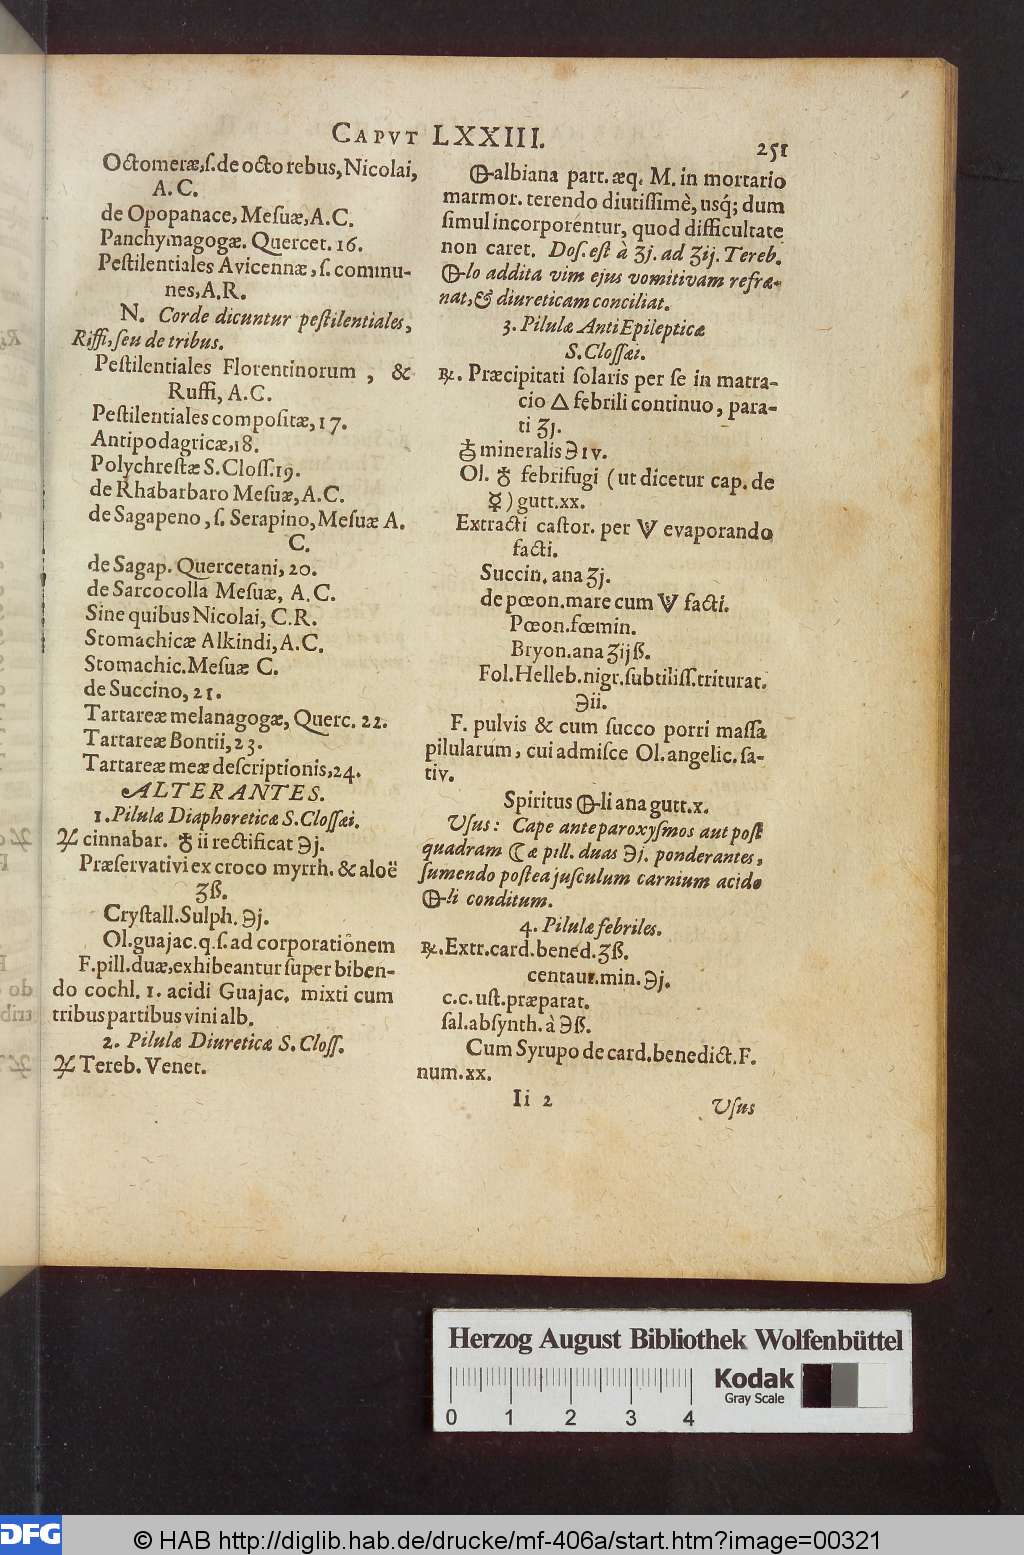 CAPVT LXXIII.
251
Octomeræ, ſ. de octo rebus, Nicolai,
A. C.
de Opopanace, Meſuæ, A.C.
Panchymagogæ. Quercet. 16.
Peſtilentiales Avicennæ, ſ. commu-
nes, A.R.
N. Corde dicuntur peſtilentiales,
Riffi, ſeu de tribus.
Peſtilentiales Florentinorum , &
Ruffi, A.C.
Peſtilentiales compoſitæ, 17.
Antipodagricæ, 18.
Polychreſtæ S. Cloſſ. 19.
de Rhabarbaro Meſuæ, A.C.
de Sagapeno, ſ. Serapino, Meſuæ A.
C.
de Sagap. Quercetani, 20.
de Sarcocolla Meſuæ, A. C.
Sine quibus Nicolai, C.R.
Stomachicæ Alkindi, A.C.
Stomachic. Meſuæ C.
de Succino, 21.
Tartareæ melanagogæ, Querc. 22.
Tartareæ Bontii, 23.
Tartareæ meæ deſcriptionis, 24.
ALTERANTES.
1. Pilulæ Diaphoreticæ S. Cloſſæi.
♃ cinnabar. ♁ ii rectificat ℈j.
Præſervativi ex croco myrrh. & aloë
ʒß.
Cryſtall. Sulph. ℈j.
Ol. guajac. q. ſ. ad corporationem
F. pill. duæ, exhibeantur ſuper biben-
do cochl. 1. acidi Guajac. mixti cum
tribus partibus vini alb.
2. Pilulæ Diureticæ S. Cloſſ.
♃ Tereb. Venet.
🜖-albiana part. æq. M. in mortario
marmor. terendo diutiſſimè, uſq́; dum
ſimul incorporentur, quod difficultate
non caret. Doſ. eſt à ʒj. ad ʒij. Tereb.
🜖-lo addita vim ejus vomitivam refræ-
nat, & diureticam conciliat.
3. Pilulæ AntiEpilepticæ
S. Cloſſæi.
℞. Præcipitati ſolaris per ſe in matra-
cio △ febrili continuo, para-
ti ʒj.
mineralis ℈ıv.
Ol. ♁ febrifugi (ut dicetur cap. de
☿) gutt. xx.
Extracti caſtor. per 🜈 evaporando
facti.
Succin. ana ʒj.
de pœon. mare cum 🜈 facti.
Pœon. fœmin.
Bryon. ana ʒijß.
Fol. Helleb. nigr. ſubtiliſſ. triturat.
℈ii.
F. pulvis & cum ſucco porri maſſa
pilularum, cui admiſce Ol. angelic. ſa-
tiv.
Spiritus 🜖-li ana gutt. x.
Uſus: Cape ante paroxyſmos aut poſt
quadram ☾æ pıll. duas ℈j. ponderantes,
ſumendo poſtea juſculum carnium acido
🜖-li conditum.
4. Pilulæ febriles.
℞. Extr. card. bened. ʒß.
centaur. min. ℈j.
c. c. uſt. præparat.
ſal. abſynth. à ℈ß.
Cum Syrupo de card. benedict. F.
num. xx.
Ii 2
Uſus
Herzog August Bibliothek Wolfenbüttel
Kodak
Gray Scale
0 1 2 3 4
DFG
© HAB http://diglib.hab.de/drucke/mf-406a/start.htm?image=00321